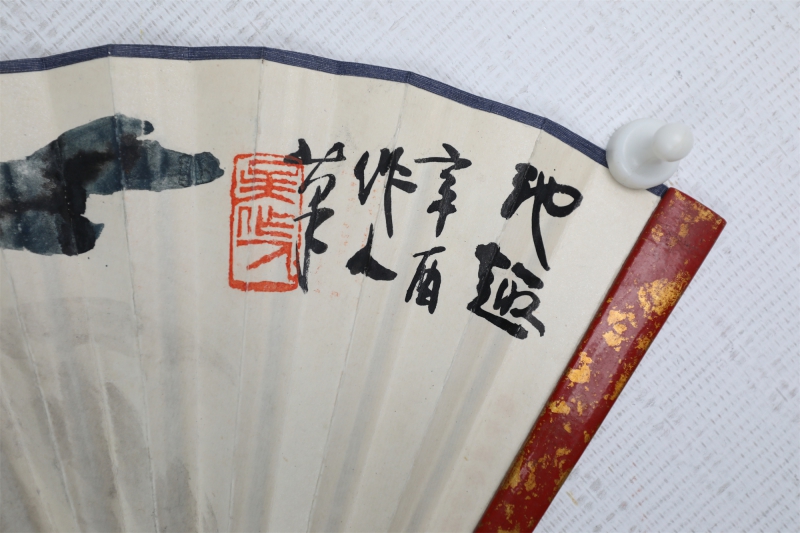 池趣
辛酉
作人
吴作人